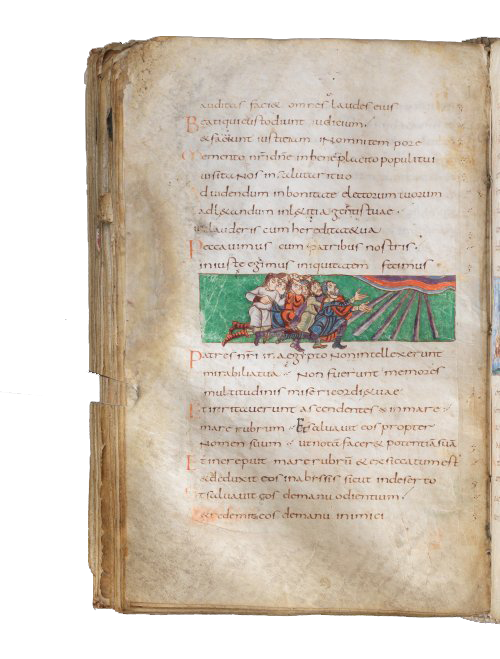 auditas faciet omnes laudes eius
Beati qui custodiunt iudicium
& faciunt iustitiam in omni tempore
Memento nr̄i dn̄e in beneplacito populi tui
uisita nos in salutari tuo
Ad uidendum in bonitate electorum tuorum
ad l&andum in l&itia gentis tuae
ut lauderis cum hereditate tua
Peccauimus cum patribus nostris
iniuste egimus iniquitatem fecimus
Patres nr̄i in aegypto non intellexerunt
mirabilia tua Non fuerunt memores
multitudinis misericordiae tuae
Et irritauerunt ascendentes in mare
mare rubrum Et saluauit eos propter
nomen suum ut notā facer& potentiā suā
Et increpuit mare rubrū & exsiccatum est
& deduxit eos in abissis sicut in deserto
Et saluauit eos de manu odientium
& redemit eos de manu inimici